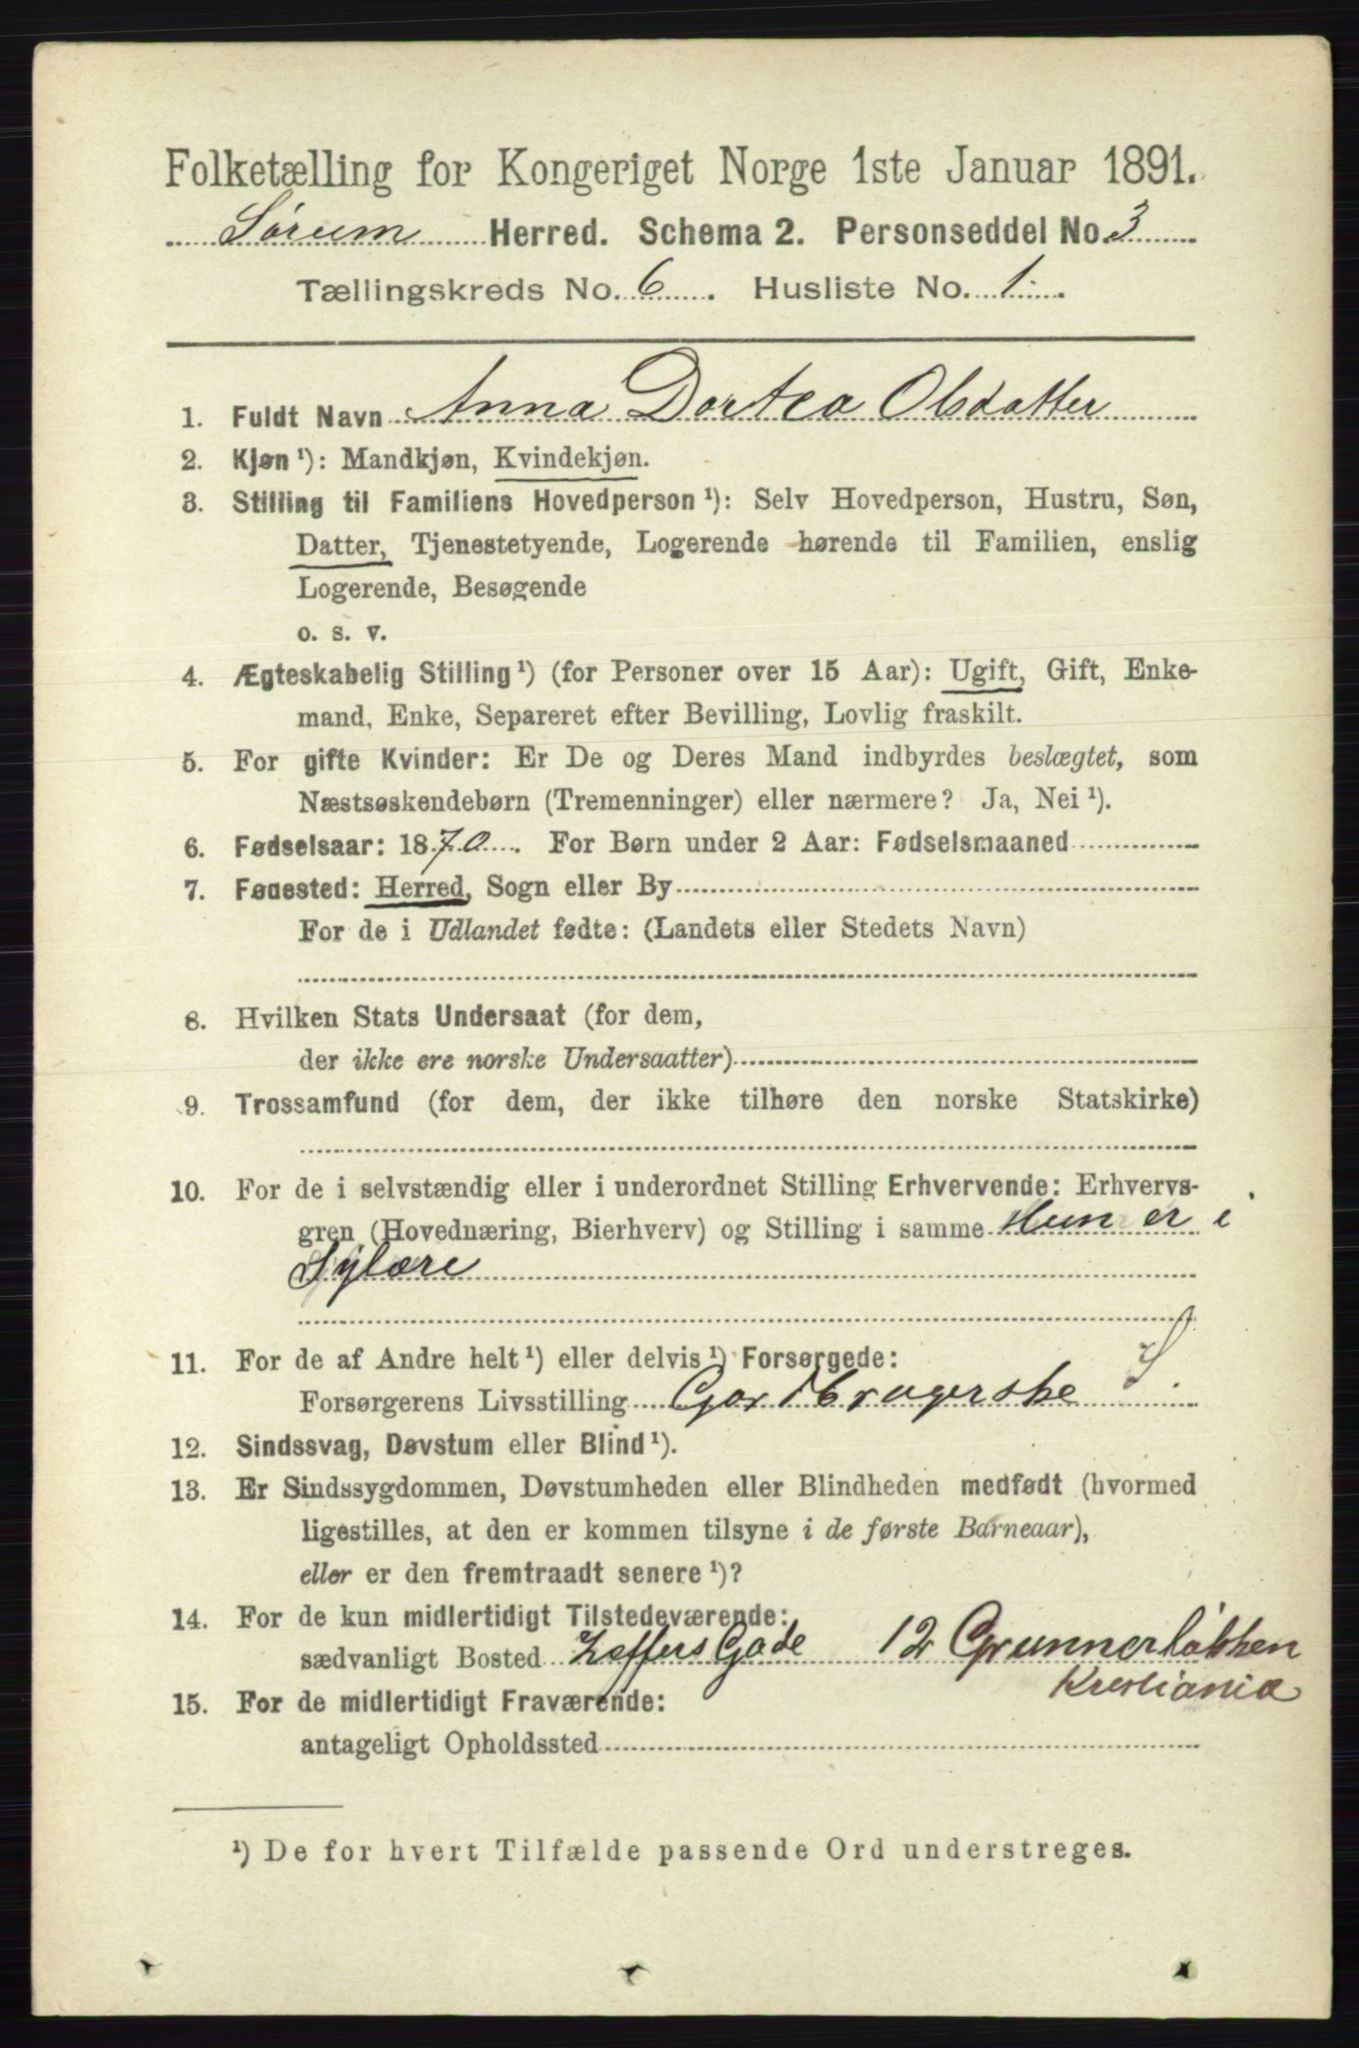 Folketælling for Kongeriget Norge 1ste Januar 1891.
Sørum Herred. Schema 2. Personseddel No. 3
Tællingskreds No. 6. Husliste No. 1.
1. Fuldt Navn Anna Dortea Olsdatter
2. Kjøn ¹): Mandkjøn, Kvindekjøn.
3. Stilling til Familiens Hovedperson ¹): Selv Hovedperson, Hustru, Søn,
Datter, Tjenestetyende, Logerende hørende til Familien, enslig
Logerende, Besøgende
o. s. v.
4. Ægteskabelig Stilling ¹) (for Personer over 15 Aar): Ugift, Gift, Enke-
mand, Enke, Separeret efter Bevilling, Lovlig fraskilt.
5. For gifte Kvinder: Er De og Deres Mand indbyrdes beslægtet, som
Næstsøskendebørn (Tremenninger) eller nærmere? Ja, Nei ¹).
6. Fødselsaar: 1870. For Børn under 2 Aar: Fødselsmaaned
7. Fødested: Herred, Sogn eller By
For de i Udlandet fødte: (Landets eller Stedets Navn)
8. Hvilken Stats Undersaat (for dem,
der ikke ere norske Undersaatter)
9. Trossamfund (for dem, der ikke tilhøre den norske Statskirke)
10. For de i selvstændig eller i underordnet Stilling Erhvervende: Erhvervs-
gren (Hovednæring, Bierhverv) og Stilling i samme Hun er i
Sylære
11. For de af Andre helt ¹) eller delvis ¹) Forsørgede: S.
Forsørgerens Livsstilling Gardbrugerske
12. Sindssvag, Døvstum eller Blind ¹).
13. Er Sindssygdommen, Døvstumheden eller Blindheden medfødt (hvormed
ligestilles, at den er kommen tilsyne i de første Barneaar),
eller er den fremtraadt senere ¹)?
14. For de kun midlertidigt Tilstedeværende:
sædvanligt Bosted Leffers Gade 12 Grunnerløkken
Kristiania
15. For de midlertidigt Fraværende:
antageligt Opholdssted
¹) De for hvert Tilfælde passende Ord understreges.